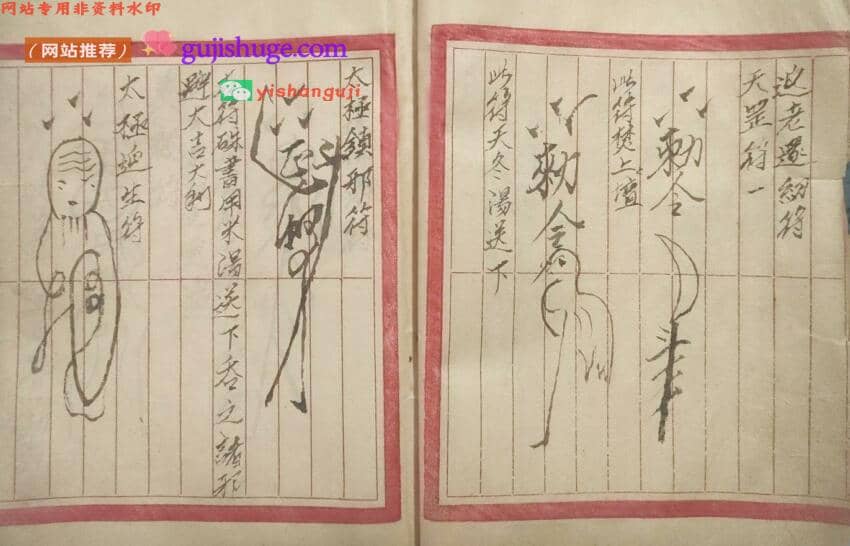 网站专用非资料水印
（网站推荐） gujishuge.com
yishanguji
返老還幼符
天罡符一
勅令
此符焚上壇
勅令
此符天冬湯送下
太極鎖邪符
符硃書用米湯送下吞之諸邪
避大吉大利
太極迫生符